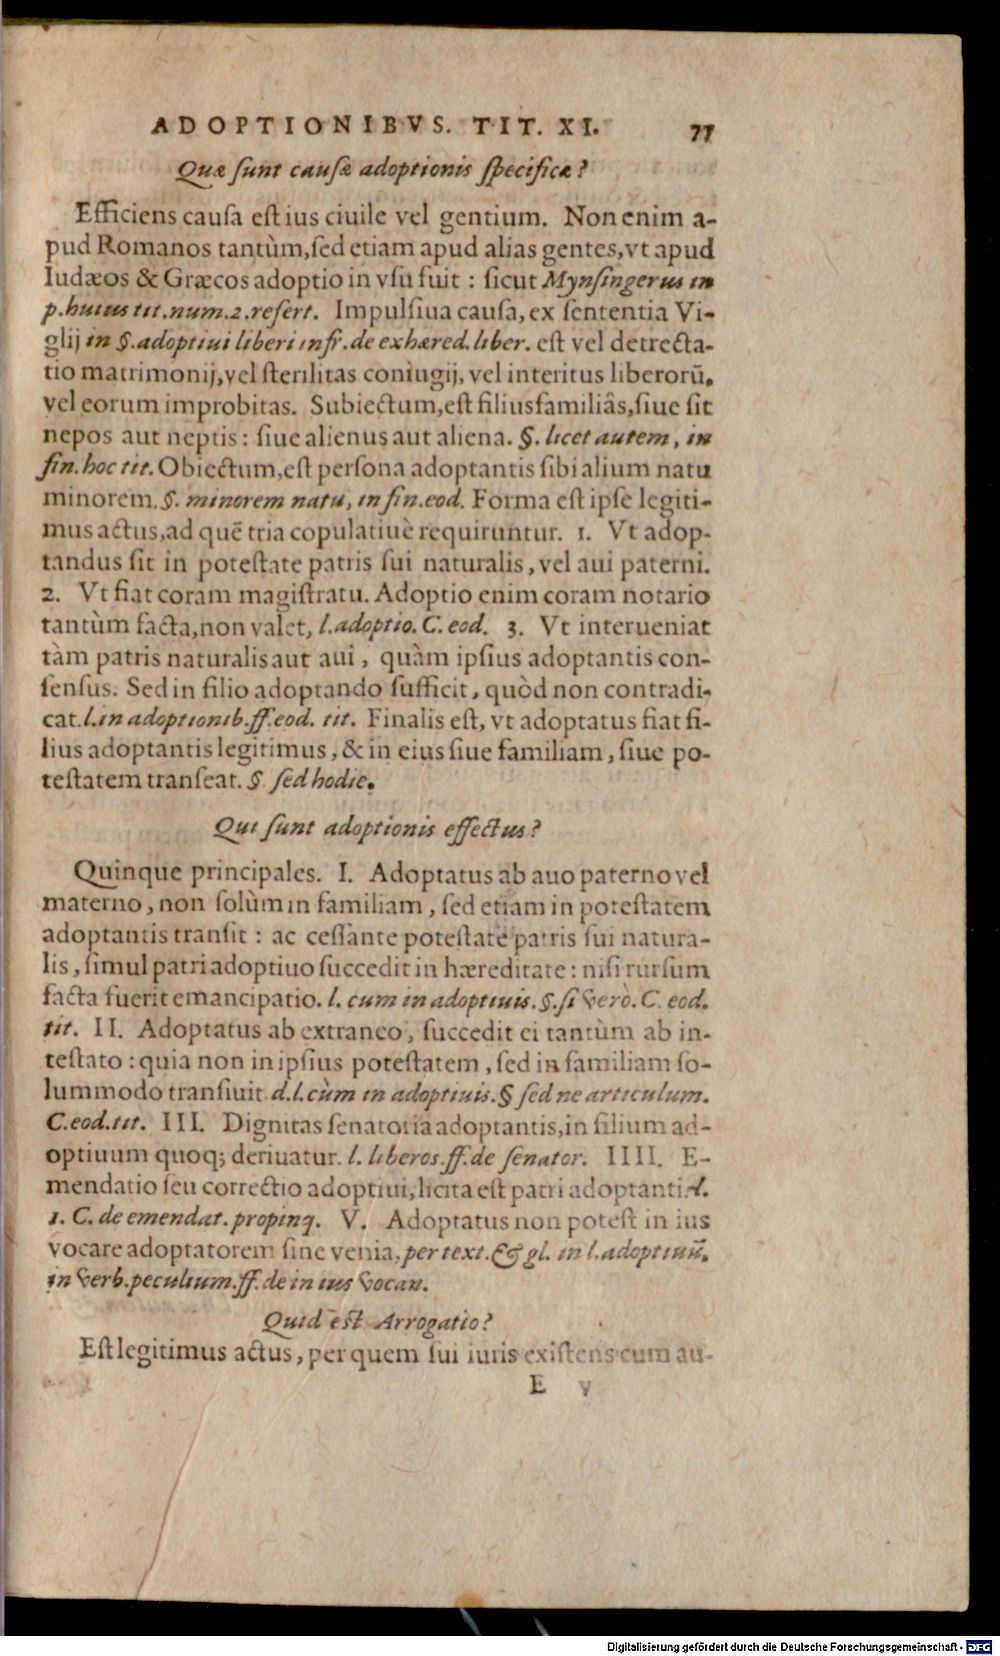 ADOPTIONIBVS. TIT. XI. 77
Quæ ſunt cauſæ adoptionis ſpecificæ?
Efficiens cauſa eſt ius ciuile vel gentium. Non enim a-
pud Romanos tantùm, ſed etiam apud alias gentes, vt apud
Iudæos & Græcos adoptio in vſu fuit : ſicut Mynſingerus in
p. huius tit. num. 2. refert. Impulſiua cauſa, ex ſententia Vi-
glij in §. adoptiui liberi infr. de exhæred. liber. eſt vel detrecta-
tio matrimonij, vel ſterilitas coniugij, vel interitus liberorũ,
vel eorum improbitas. Subiectum, eſt filiusfamiliâs, ſiue ſit
nepos aut neptis : ſiue alienus aut aliena. §. licet autem, in
fin. hoc tit. Obiectum, eſt perſona adoptantis ſibi alium natu
minorem. §. minorem natu, in fin. eod. Forma eſt ipſe legiti-
mus actus, ad quẽ tria copulatiuè requiruntur. 1. Vt adop-
tandus ſit in poteſtate patris ſui naturalis, vel aui paterni.
2. Vt fiat coram magiſtratu. Adoptio enim coram notario
tantùm facta, non valet, l. adoptio. C. eod. 3. Vt interueniat
tàm patris naturalis aut aui, quàm ipſius adoptantis con-
ſenſus. Sed in filio adoptando ſufficit, quòd non contradi-
cat. l. in adoptionib. ff. eod. tit. Finalis eſt, vt adoptatus fiat fi-
lius adoptantis legitimus, & in eius ſiue familiam, ſiue po-
teſtatem tranſeat. § ſed hodie.
Qui ſunt adoptionis effectus?
Quinque principales. I. Adoptatus ab auo paterno vel
materno, non ſolùm in familiam, ſed etiam in poteſtatem
adoptantis tranſit : ac ceſſante poteſtate patris ſui natura-
lis, ſimul patri adoptiuo ſuccedit in hæreditate : niſi rurſum
facta fuerit emancipatio. l. cum in adoptiuis. §. ſi verò. C. eod.
tit. II. Adoptatus ab extraneo, ſuccedit ei tantùm ab in-
teſtato : quia non in ipſius poteſtatem, ſed in familiam ſo-
lummodo tranſiuit d. l. cùm in adoptiuis. § ſed ne articulum.
C. eod. tit. III. Dignitas ſenatoria adoptantis, in filium ad-
optiuum quoq; deriuatur. l. liberos. ff. de ſenator. IIII. E-
mendatio ſeu correctio adoptiui, licita eſt patri adoptanti. l.
1. C. de emendat. propinq. V. Adoptatus non poteſt in ius
vocare adoptatorem ſine venia, per text. & gl. in l. adoptiuũ,
in verb. peculium. ff. de in ius vocan.
Quid eſt Arrogatio?
Eſt legitimus actus, per quem ſui iuris exiſtens cum au-
E v
Digitalisierung gefördert durch die Deutsche Forschungsgemeinschaft - DFG